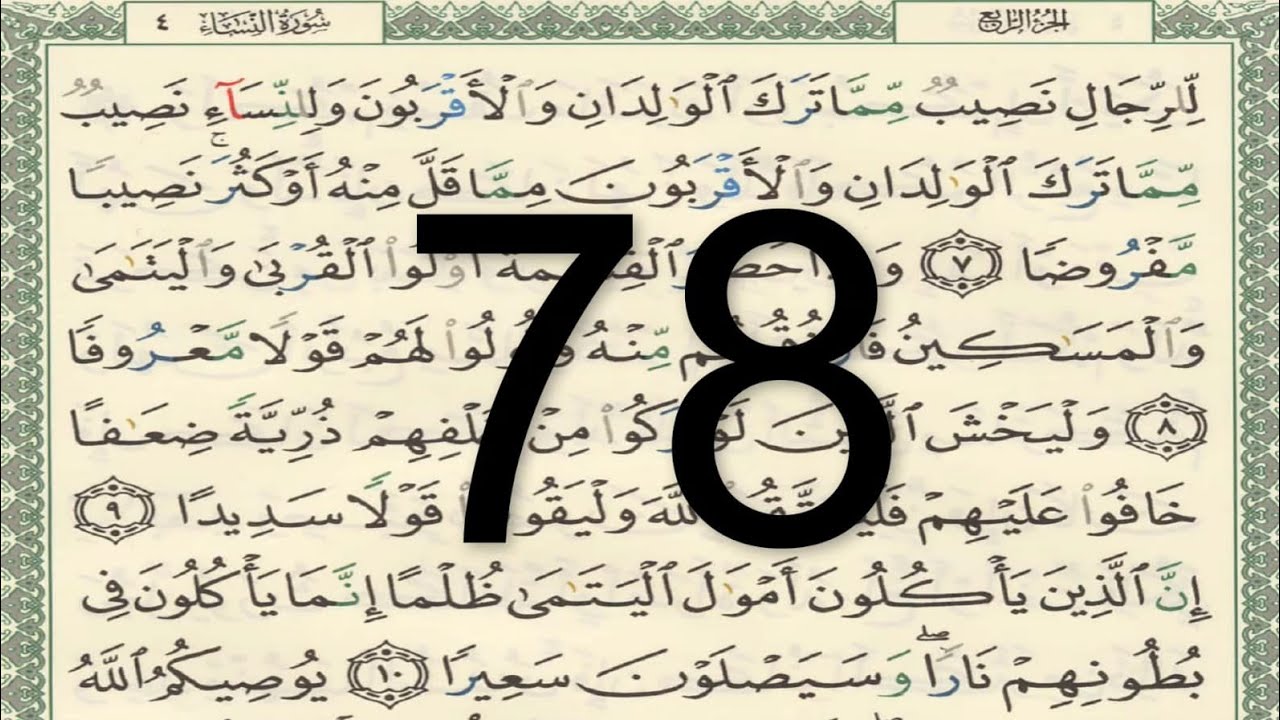 الجُزْءُ الرَّابِعُ
سُورَةُ النِّسَاءِ ٤
لِّلرِّجَالِ نَصِيبٌ مِّمَّا تَرَكَ ٱلْوَٰلِدَانِ وَٱلْأَقْرَبُونَ وَلِلنِّسَآءِ نَصِيبٌ
مِّمَّا تَرَكَ ٱلْوَٰلِدَانِ وَٱلْأَقْرَبُونَ مِمَّا قَلَّ مِنْهُ أَوْ كَثُرَ ۚ نَصِيبًا
مَّفْرُوضًا ٧ أُو۟لُوا۟ ٱلْقُرْبَىٰ وَٱلْيَتَٰمَىٰ
وَٱلْمَسَٰكِينُ مِّنْهُ لَهُمْ قَوْلًا مَّعْرُوفًا
٨ وَلْيَخْشَ مِنْ ذُرِّيَّةً ضِعَٰفًا
خَافُوا۟ عَلَيْهِمْ قَوْلًا سَدِيدًا ٩
إِنَّ ٱلَّذِينَ يَأْكُلُونَ أَمْوَٰلَ ٱلْيَتَٰمَىٰ ظُلْمًا إِنَّمَا يَأْكُلُونَ فِى
بُطُونِهِمْ نَارًا ۖ وَسَيَصْلَوْنَ سَعِيرًا ١٠ يُوصِيكُمُ ٱللَّهُ
78